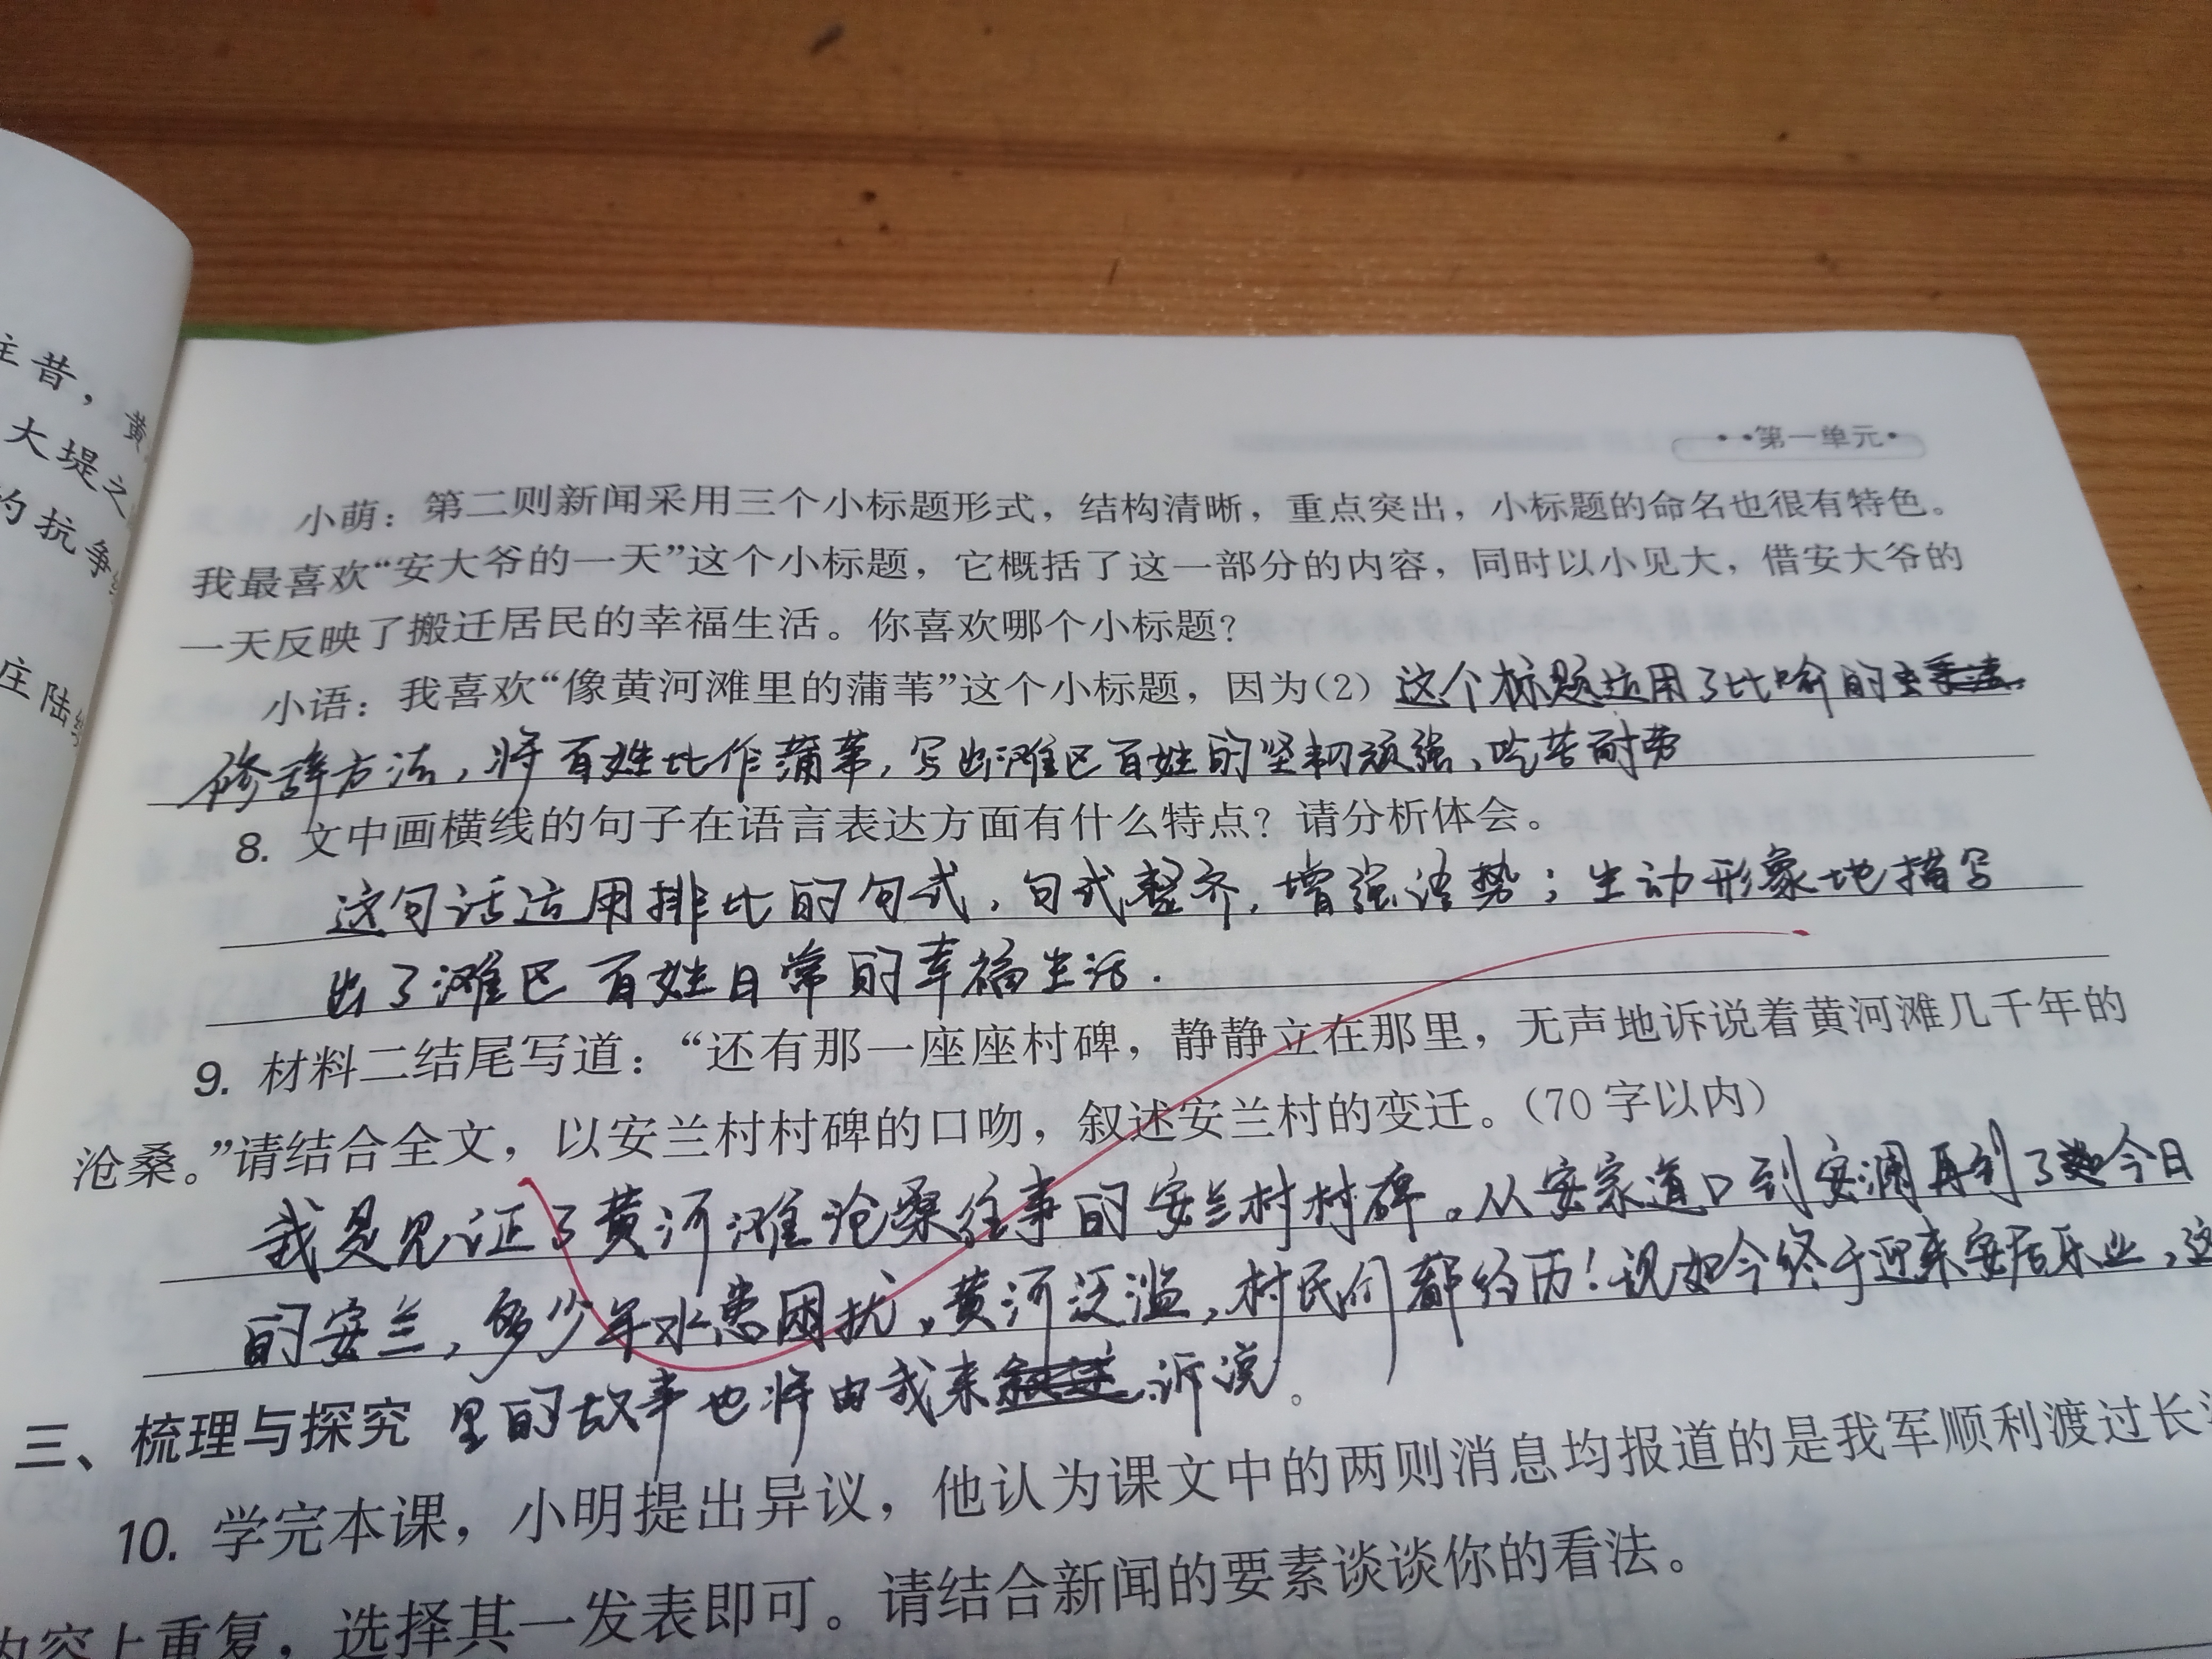 主昔，黄
大堤之
的抗争
庄陆续
第一单元
小萌：第二则新闻采用三个小标题形式，结构清晰，重点突出，小标题的命名也很有特色。
我最喜欢“安大爷的一天”这个小标题，它概括了这一部分的内容，同时以小见大，借安大爷的
一天反映了搬迁居民的幸福生活。你喜欢哪个小标题？
小语：我喜欢“像黄河滩里的蒲苇”这个小标题，因为（2）这个标题运用了比喻的
修辞方法，将百姓比作蒲苇，写出滩区百姓的坚韧顽强、吃苦耐劳
8. 文中画横线的句子在语言表达方面有什么特点？请分析体会。
这句话运用排比的句式，句式整齐，增强语势；生动形象地描写
出了滩区百姓日常的幸福生活.
9. 材料二结尾写道：“还有那一座座村碑，静静立在那里，无声地诉说着黄河滩几千年的
沧桑。”请结合全文，以安兰村村碑的口吻，叙述安兰村的变迁。（70字以内）
我是见证了黄河滩沧桑往事的安兰村村碑。从安家道口到安澜再到了今日
的安兰，多少年水患困扰，黄河泛滥，村民们都经历！现如今终于迎来安居乐业，这
里的故事也将由我来诉说。
三、梳理与探究
10. 学完本课，小明提出异议，他认为课文中的两则消息均报道的是我军顺利渡过长
内容上重复，选择其一发表即可。请结合新闻的要素谈谈你的看法。